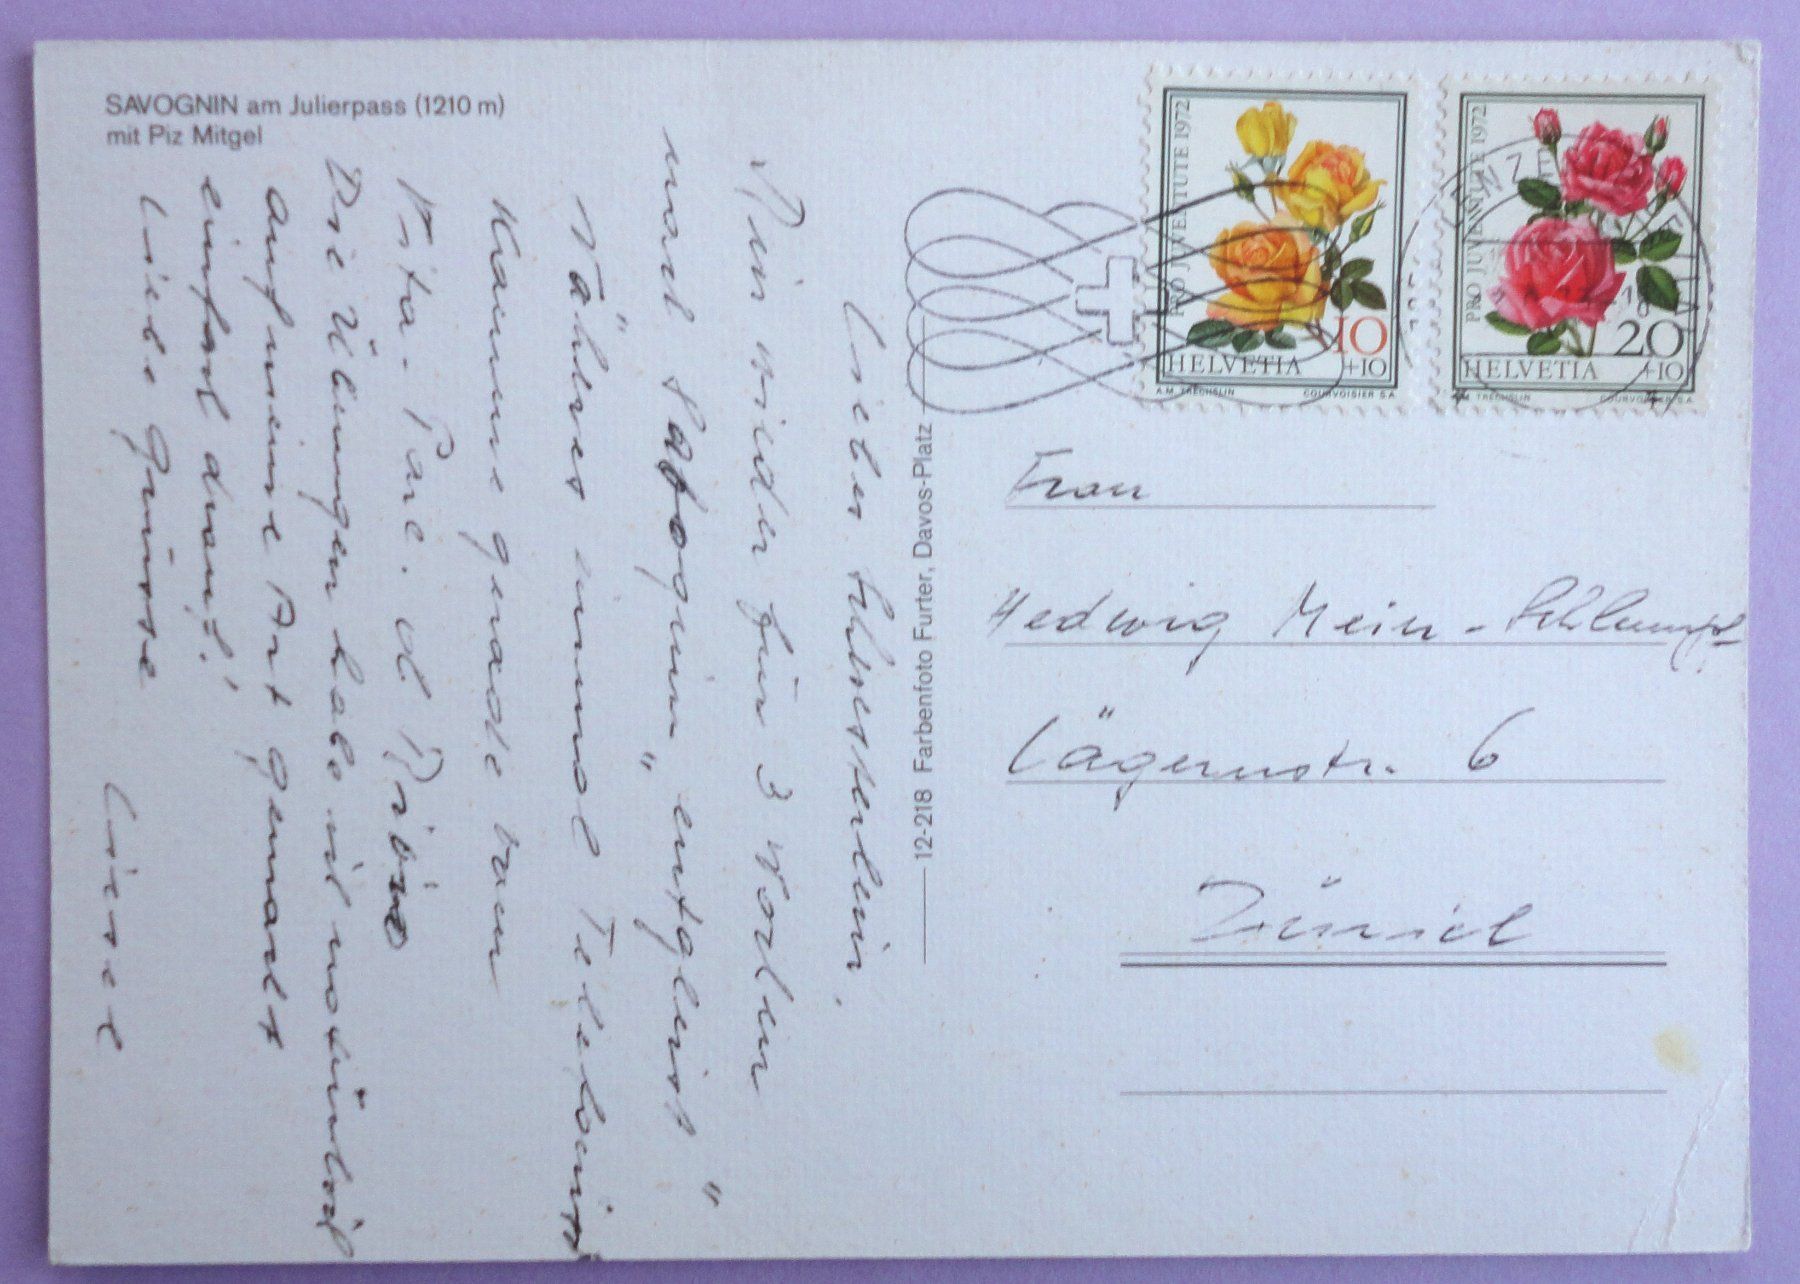 SAVOGNIN am Julierpass (1210 m)
mit Piz Mitgel
Liebes Schwesterlein,
Bin wieder für 3 Wochen
nach Savognin "entgleist"
Näheres einmal
Komme gerade vom
Vita-Parc.
Die Übungen habe ich natürlich
auf meine Art gemacht
einfach drauf!
Liebe Grüsse
Liesel
12-218 Farbenfoto Furter, Davos-Platz
PRO JUVENTUTE 1972
10
+10
HELVETIA
A.M. TRECHSLIN
COURVOISIER S.A.
PRO JUVENTUTE 1972
20
+10
HELVETIA
A.M. TRECHSLIN
COURVOISIER S.A.
Frau
Hedwig Meier-Schlumpf
Lägernstr. 6
Zürich